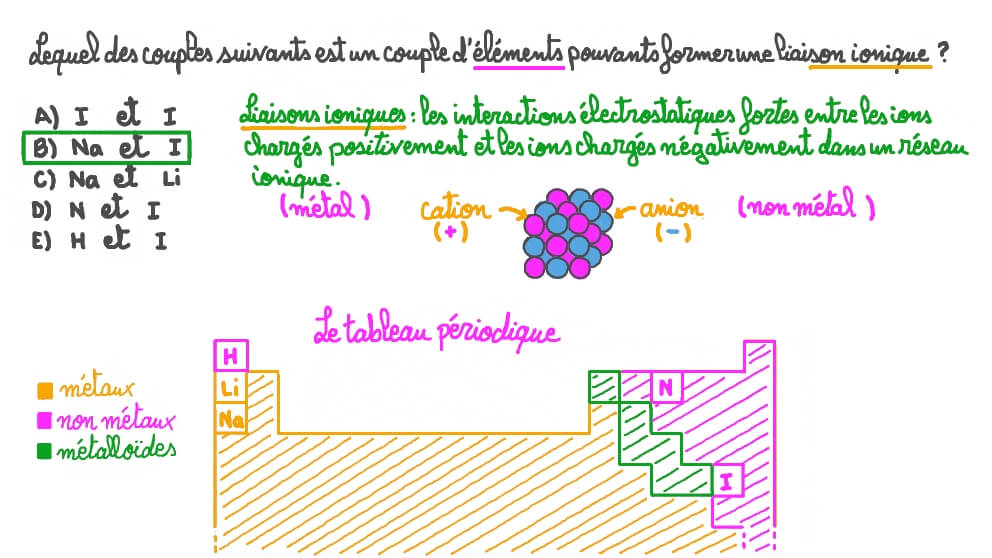 Lequel des couples suivants est un couple d'éléments pouvants former une liaison ionique ?
A) I et I
B) Na et I
C) Na et Li
D) N et I
E) H et I
Liaisons ioniques : les interactions électrostatiques fortes entre les ions
chargés positivement et les ions chargés négativement dans un réseau
ionique.
(métal) cation anion (non métal)
(+) (-)
Le tableau périodique
H
Li
Na
N
I
métaux
non métaux
métalloïdes